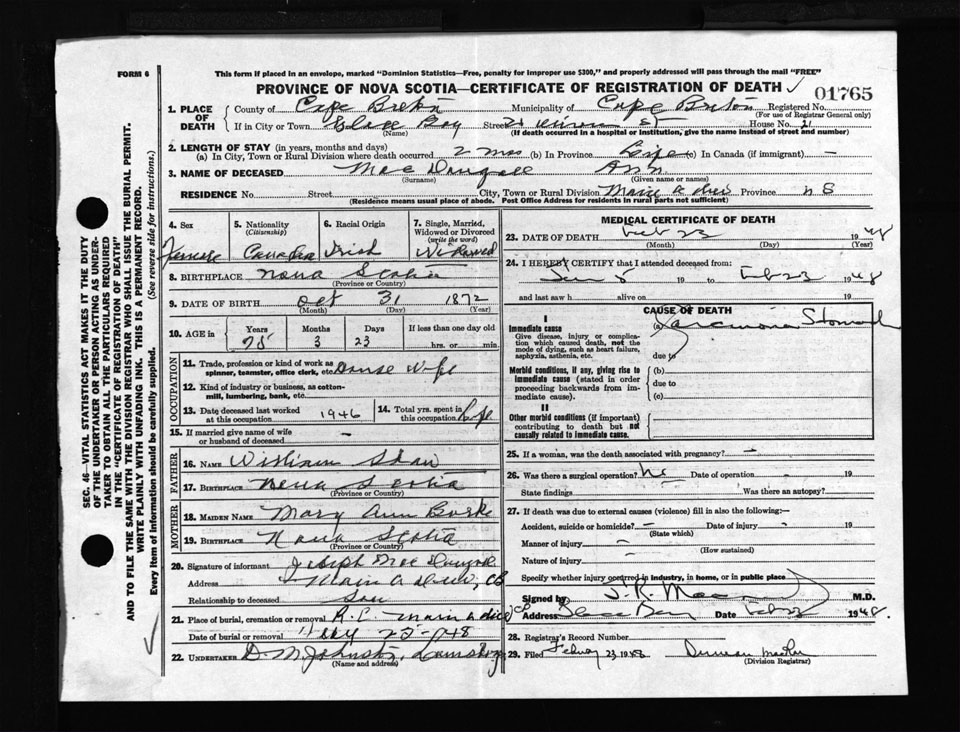 FORM 6
This form if placed in an envelope, marked "Dominion Statistics—Free, penalty for improper use $300," and properly addressed will pass through the mail "FREE"
PROVINCE OF NOVA SCOTIA—CERTIFICATE OF REGISTRATION OF DEATH
01765
1. PLACE OF DEATH
County of Cape Breton Municipality of Cape Breton Registered No.
(For use of Registrar General only)
If in City or Town Glace Bay Street 21 St House No. 21
(Name) (If death occurred in a hospital or institution, give the name instead of street and number)
2. LENGTH OF STAY (in years, months and days)
(a) In City, Town or Rural Division where death occurred 2 mos (b) In Province Life (c) In Canada (if immigrant) –
3. NAME OF DECEASED MacDougall Ann
(Surname) (Given name or names)
RESIDENCE No. Street City, Town or Rural Division Main a dieu Province N S
(Residence means usual place of abode. Post Office Address for residents in rural parts not sufficient)
4. Sex
Female
5. Nationality
(Citizenship)
Canadian
6. Racial Origin
Irish
7. Single, Married, Widowed or Divorced
(write the word)
Widowed
8. BIRTHPLACE Nova Scotia
(Province or Country)
9. DATE OF BIRTH Oct 31 1872
(Month) (Day) (Year)
10. AGE in
Years Months Days If less than one day old
75 3 23 hrs. or min.
OCCUPATION
11. Trade, profession or kind of work as spinner, teamster, office clerk, etc. House Wife
12. Kind of industry or business, as cotton-mill, lumbering, bank, etc.
13. Date deceased last worked at this occupation 1946
14. Total yrs. spent in this occupation Life
15. If married give name of wife or husband of deceased –
FATHER
16. NAME William Shaw
17. BIRTHPLACE Nova Scotia
(Province or Country)
MOTHER
18. MAIDEN NAME Mary Ann Burke
19. BIRTHPLACE Nova Scotia
(Province or Country)
20. Signature of informant Joseph MacDougall
Address Main A Dieu, CB
Relationship to deceased Son
21. Place of burial, cremation or removal R.C. Main a dieu CB
Date of burial or removal 25-1948
22. UNDERTAKER D. M. Johnston, Louisburg
(Name and address)
MEDICAL CERTIFICATE OF DEATH
23. DATE OF DEATH Feb 23 1948
(Month) (Day) (Year)
24. I HEREBY CERTIFY that I attended deceased from:
Jan 5 19 to Feb 23 1948
and last saw h alive on 19
CAUSE OF DEATH
I
Immediate cause
Give disease, injury or complication which caused death, not the mode of dying, such as heart failure, asphyxia, asthenia, etc.
(a) Carcinoma Stomach
due to
Morbid conditions, if any, giving rise to immediate cause (stated in order proceeding backwards from immediate cause).
(b)
due to
(c)
II
Other morbid conditions (if important) contributing to death but not causally related to immediate cause.
25. If a woman, was the death associated with pregnancy? –
26. Was there a surgical operation? No Date of operation – 19
State findings Was there an autopsy?
27. If death was due to external causes (violence) fill in also the following:—
Accident, suicide or homicide? – Date of injury – 19
(State which)
Manner of injury –
(How sustained)
Nature of injury –
Specify whether injury occurred in industry, in home, or in public place
Signed by J. R. M.D.
Address Glace Bay Feb 23 1948
28. Registrar's Record Number
29. Filed Feb 23 1948
(Division Registrar)
SEC. 46—VITAL STATISTICS ACT MAKES IT THE DUTY
OF THE UNDERTAKER OR PERSON ACTING AS UNDERTAKER TO OBTAIN ALL THE PARTICULARS REQUIRED
IN THE "CERTIFICATE OF REGISTRATION OF DEATH"
AND TO FILE THE SAME WITH THE DIVISION REGISTRAR WHO SHALL ISSUE THE BURIAL PERMIT.
WRITE PLAINLY WITH UNFADING INK. THIS IS A PERMANENT RECORD.
Every item of information should be carefully supplied. (See reverse side for instructions.)